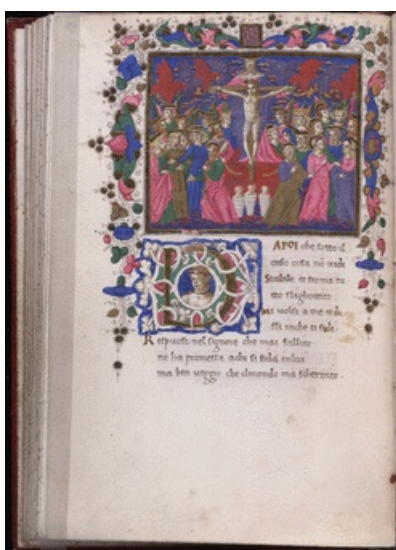 DAPOI che sotto il
cielo cosa nō uidi
Stabile et ferma tu
tto sbigottito
Mi uolsi a me
ssi in che ti fidi
Rispuosi nel signore che mai fallito
nō ha promessa a chi si fida in lui
ma ben ueggo che elmondo ma schernito.